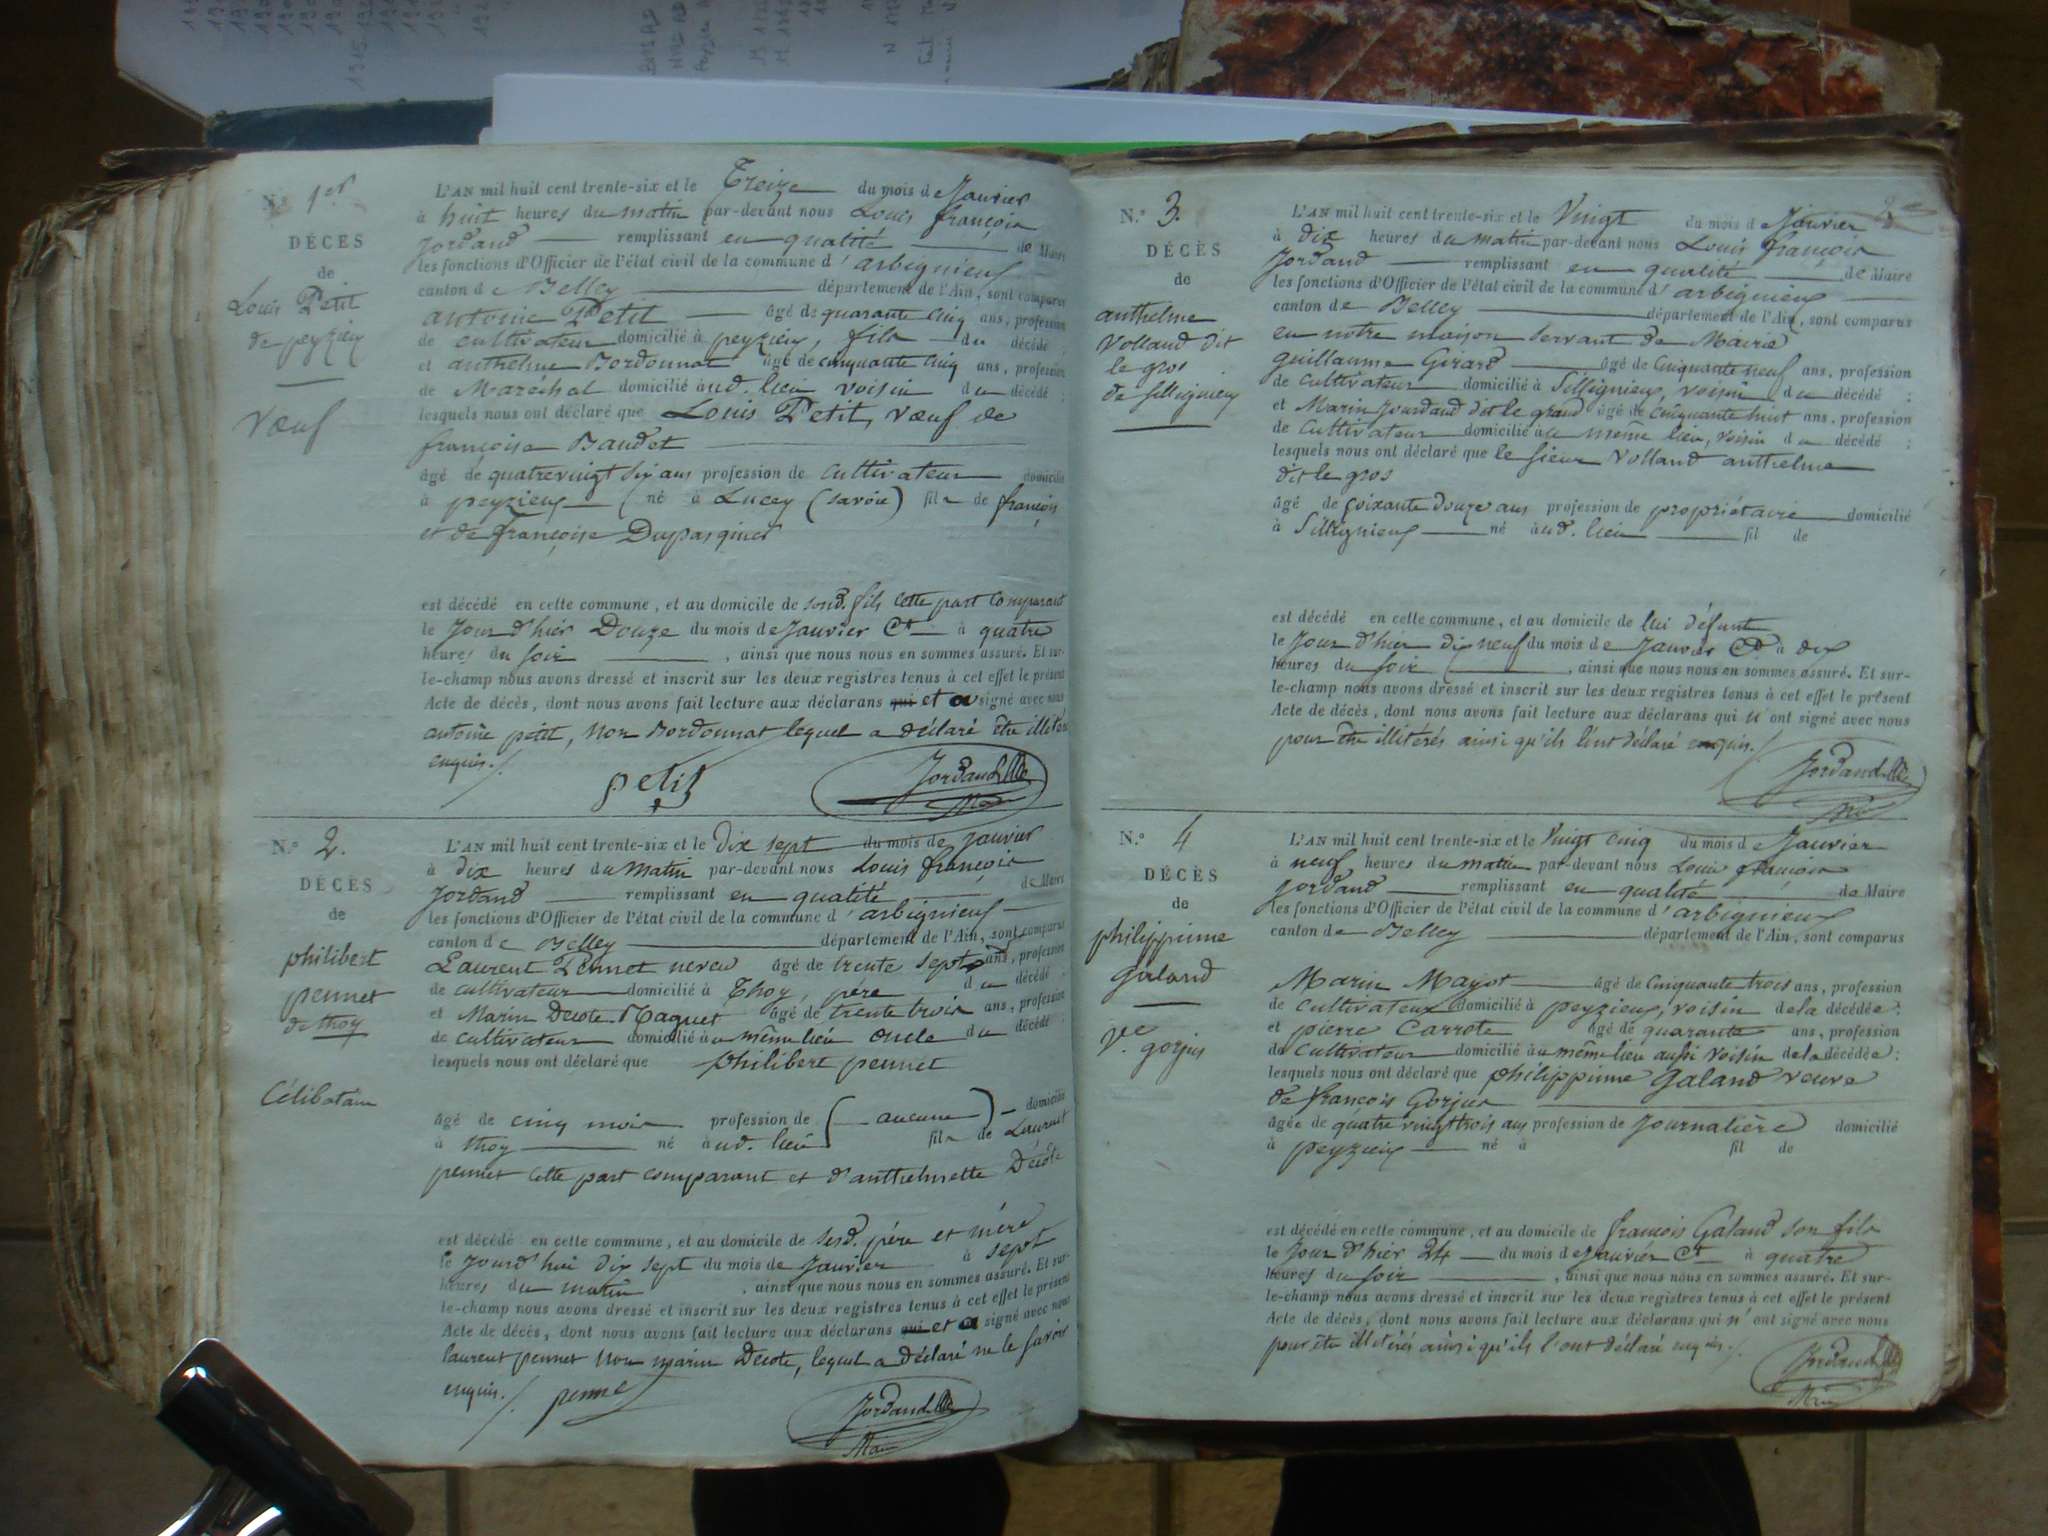 N.° 1er
DÉCES
de
Louis Petit
de peyzieu
Vœuf
L'AN mil huit cent trente-six et le Treize du mois de Janvier
à huit heures du matin par-devant nous Louis françois
Jordand remplissant en qualité de Maire
les fonctions d'Officier de l'état civil de la commune d'arbignieu
canton de Belley département de l'Ain, sont comparus
antoine Petit âgé de quarante cinq ans, profession
de cultivateur domicilié à peyzieu, fils du décédé
et anthelme Bordonnat âgé de cinquante cinq ans, profession
de Maréchal domicilié aud. lieu voisin du décédé ;
lesquels nous ont déclaré que Louis Petit, vœuf de
françoise Baudet
âgé de quatrevingt six ans profession de cultivateur domicilié
à peyzieu né à Lucey (savoie) fils de françois
et de françoise Dupasquier
est décédé en cette commune, et au domicile de sond. fils cette part comparant
le Jour d'hier Douze du mois de Janvier Ct à quatre
heures du soir , ainsi que nous nous en sommes assuré. Et sur-
le-champ nous avons dressé et inscrit sur les deux registres tenus à cet effet le présent
Acte de décès, dont nous avons fait lecture aux déclarans qui et a signé avec nous
antoine petit, non Bordonnat lequel a déclaré être illitéré
enquis./.
petit
Jordand
Maire
N.° 2.
DÉCÈS
de
philibert
pennet
de thoy
Célibataire
L'AN mil huit cent trente-six et le Dix sept du mois de Janvier
à dix heures du matin par-devant nous Louis françois
Jordand remplissant en qualité de Maire
les fonctions d'Officier de l'état civil de la commune d'arbignieu
canton de Belley département de l'Ain, sont comparus
Laurent Pennet neveu âgé de trente sept ans, profession
de cultivateur domicilié à Thoy, père du décédé
et Marin Decote Taquet âgé de trente trois ans, profession
de cultivateur domicilié au même lieu oncle du décédé
lesquels nous ont déclaré que philibert pennet
âgé de cinq mois profession de (aucune) domicilié
à thoy né aud. lieu fils de Laurent
pennet cette part comparant et d'anthelmette Decote
est décédé en cette commune, et au domicile de sesd. père et mère
le Jourd'hui dix sept du mois de Janvier à sept
heures du matin , ainsi que nous nous en sommes assuré. Et sur-
le-champ nous avons dressé et inscrit sur les deux registres tenus à cet effet le présent
Acte de décès, dont nous avons fait lecture aux déclarans qui et a signé avec nous
laurent pennet non marin Decote, lequel a déclaré ne le savoir
enquis./.
penne
Jordand
Maire
N.° 3.
DÉCÈS
de
anthelme
Volland dit
le gros
de sillignieu
L'AN mil huit cent trente-six et le Vingt du mois de Janvier
à dix heures du matin par-devant nous Louis françois
Jordand remplissant en qualité de Maire
les fonctions d'Officier de l'état civil de la commune d'arbignieu
canton de Belley département de l'Ain, sont comparus
en notre maison servant de Mairie
guillaume Girard âgé de Cinquante neuf ans, profession
de cultivateur domicilié à Sillignieu, voisin du décédé ;
et Marin Jourdand dit le grand âgé de Cinquante huit ans, profession
de cultivateur domicilié au même lieu, voisin du décédé ;
lesquels nous ont déclaré que le sieur Volland anthelme
dit le gros
âgé de soixante douze ans profession de propriétaire domicilié
à Sillignieu né aud. lieu fil de
est décédé en cette commune, et au domicile de lui défunt
le Jour d'hier dix neuf du mois de Janvier Ct à dix
heures du soir , ainsi que nous nous en sommes assuré. Et sur-
le-champ nous avons dressé et inscrit sur les deux registres tenus à cet effet le présent
Acte de décès, dont nous avons fait lecture aux déclarans qui n'ont signé avec nous
pour être illitérés ainsi qu'ils l'ont déclaré enquis./.
Jordand
Maire
N.° 4
DÉCÈS
de
philippinne
galand
Ve. gorjus
L'AN mil huit cent trente-six et le Vingt cinq du mois de Janvier
à neuf heures du matin par-devant nous Louis françois
Jordand remplissant en qualité de Maire
les fonctions d'Officier de l'état civil de la commune d'arbignieu
canton de Belley département de l'Ain, sont comparus
Marin Mayot âgé de cinquante trois ans, profession
de cultivateur domicilié à peyzieu, voisin de la décédée ;
et pierre Carrote âgé de quarante ans, profession
de cultivateur domicilié au même lieu aussi voisin de la décédée ;
lesquels nous ont déclaré que philippinne Galand veuve
de françois Gorjus
âgée de quatre vingt trois ans profession de Journalière domicilié
à peyzieu né à fil de
est décédé en cette commune, et au domicile de françois Galand son fils
le Jour d'hier 24 du mois de Janvier Ct à quatre
heures du soir , ainsi que nous nous en sommes assuré. Et sur-
le-champ nous avons dressé et inscrit sur les deux registres tenus à cet effet le présent
Acte de décès, dont nous avons fait lecture aux déclarans qui n'ont signé avec nous
pour être illitérés ainsi qu'ils l'ont déclaré enquis./.
Jordand
Maire